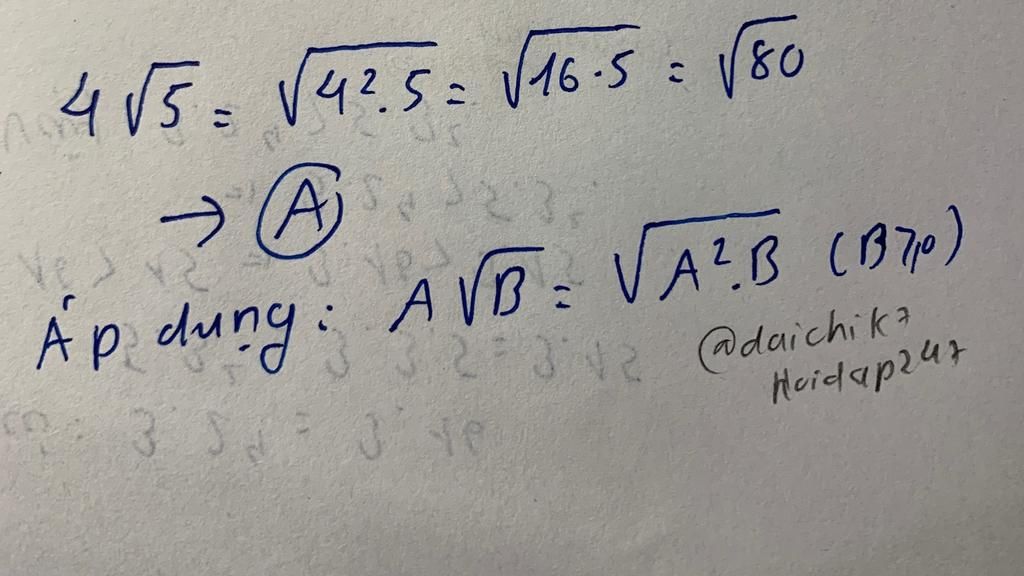 4√5 = √4².5 = √16.5 = √80
→ Ⓐ
Áp dụng: A√B = √A².B (B≥0)
@daichik7
Hoidap247